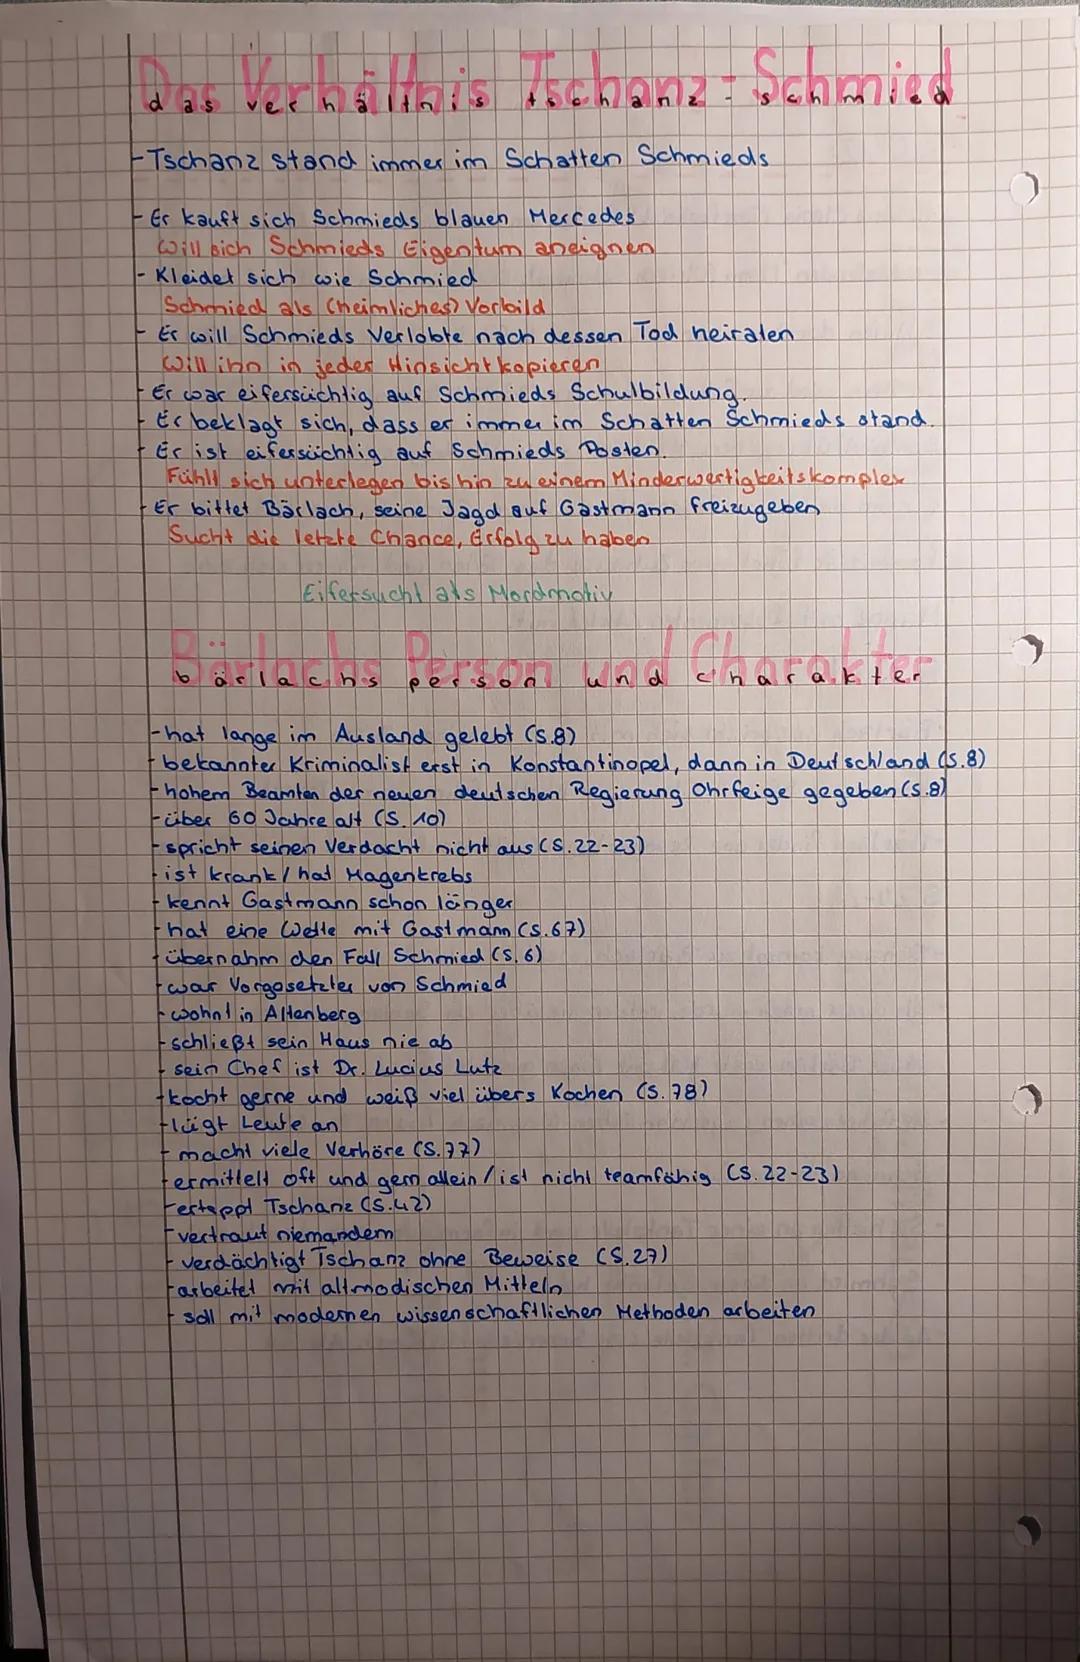 Das Verhältnis Tschanz-Schmied
das verhältnis tschanz - schmied
-Tschanz stand immer im Schatten Schmieds
-Er kauft sich Schmieds blauen Mercedes
Will sich Schmieds Eigentum aneignen
- Kleidet sich wie Schmied
Schmied als (heimliches) Vorbild
- Er will Schmieds Verlobte nach dessen Tod heiraten
Will ihn in jeder Hinsicht kopieren
-Er war eifersüchtig auf Schmieds Schulbildung.
- Er beklagt sich, dass er immer im Schatten Schmieds stand.
- Er ist eifersüchtig auf Schmieds Posten.
Fühlt sich unterlegen bis hin zu einem Minderwertigkeitskomplex
-Er bittet Bärlach, seine Jagd auf Gastmann freizugeben
Sucht die letzte Chance, Erfolg zu haben
Eifersucht als Mordmotiv
Bärlachs Person und Charakter
bärlachs person und charakter
-hat lange im Ausland gelebt (S.8)
-bekannter Kriminalist erst in Konstantinopel, dann in Deutschland (S.8)
-hohem Beamten der neuen deutschen Regierung Ohrfeige gegeben (S.8)
-über 60 Jahre alt (S. 10)
-spricht seinen Verdacht nicht aus (S.22-23)
-ist krank / hat Magenkrebs
-kennt Gastmann schon länger
-hat eine Wette mit Gastmann (S.67)
-übernahm den Fall Schmied (S.6)
-war Vorgesetzter von Schmied
-wohnt in Altenberg
-schließt sein Haus nie ab
- sein Chef ist Dr. Lucius Lutz
-kocht gerne und weiß viel übers Kochen (S. 78)
-lügt Leute an
- macht viele Verhöre (S.77)
-ermittelt oft und gern allein / ist nicht teamfähig (S. 22-23)
-ertappt Tschanz (S.42)
-vertraut niemandem
- verdächtigt Tschanz ohne Beweise (S.27)
-arbeitet mit altmodischen Mitteln
- soll mit modernen wissenschaftlichen Methoden arbeiten